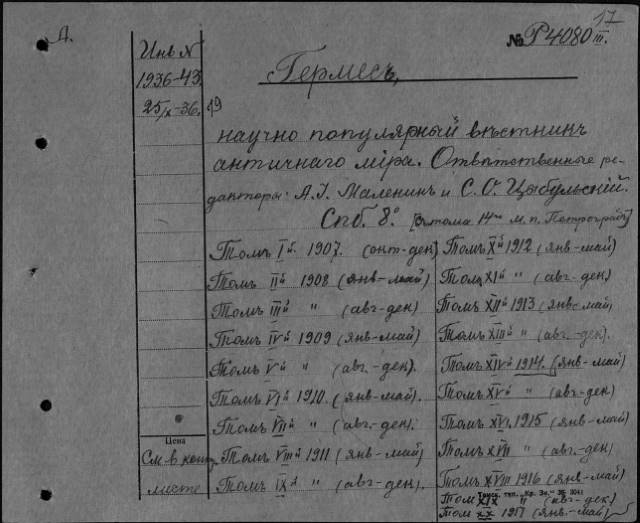 17
№ Р4080 III.
Инв №
1936-43.
25/IX-36.
Гермесъ,
научно популярный вѣстникъ
античнаго мiра. Отвѣтственные ре-
дакторы: А.I. Маленинъ и С.О. Цыбульскiй.
Спб. 8° [съ тома 14го м. п. Петроградъ]
Томъ Iй. 1907. (окт-дек)
Томъ IIй 1908 (янв-май)
Томъ IIIй " (авг-дек)
Томъ IVй 1909 (янв-май)
Томъ Vй " (авг.-дек).
Томъ VIй 1910. (янв-май).
Томъ VIIй " (авг.-дек).
Томъ VIIIй 1911 (янв-май)
Томъ IXй " (авг-дек).
Томъ Xй 1912 (янв-май)
Томъ XIй " (авг-дек)
Томъ XIIй 1913 (янв-май)
Томъ XIIIй " (авг-дек).
Томъ XIVй 1914. (янв-май)
Томъ XVй " (авг-дек)
Томъ XVI. 1915 (янв-май)
Томъ XVII " (авг-дек)
Томъ XVIII 1916 (янв-май)
Том XIX " (авг-дек)
Том XX 1917 (янв.-май)
Цена
См. в конц
листе
тип. Кр. Зн.